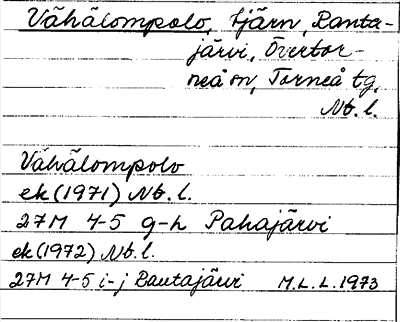 Vähälompolo, tjärn, Ranta-
järvi, Övertor-
neå sn, Torneå tg,
Nb. l.
Vähälompolo
ek (1971) Nb. l.
27M 4-5 g-h Pahajärvi
ek (1972) Nb. l.
27M 4-5 i-j Rautajärvi M.L.L. 1973